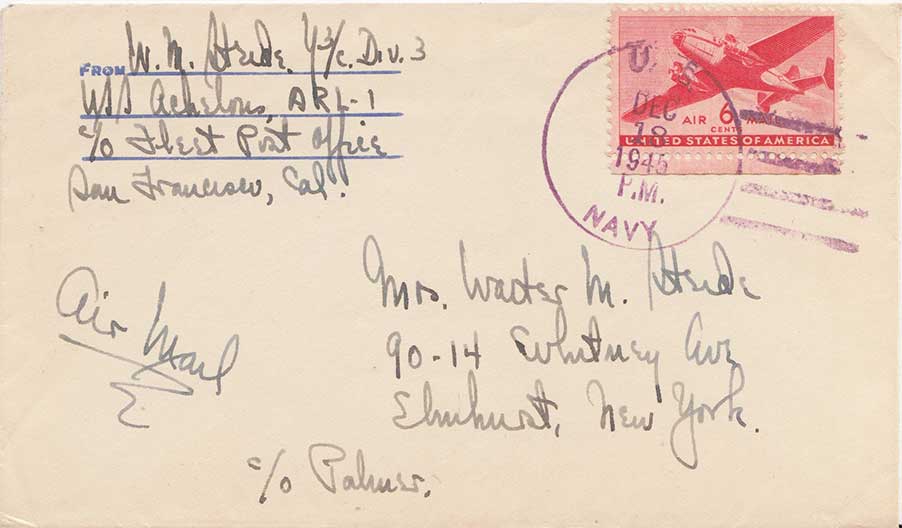 FROM W. M. Steide Y3/c. Div. 3
USS Achelous, ARL-1
c/o Fleet Post Office
San Francisco, Cal.
U. S.
DEC
18
1945
P.M.
NAVY
AIR 6 MAIL
CENTS
UNITED STATES OF AMERICA
Air Mail
Mrs. Walter M. Steide
90-14 Whitney Ave
Elmhurst, New York.
c/o Palmer.